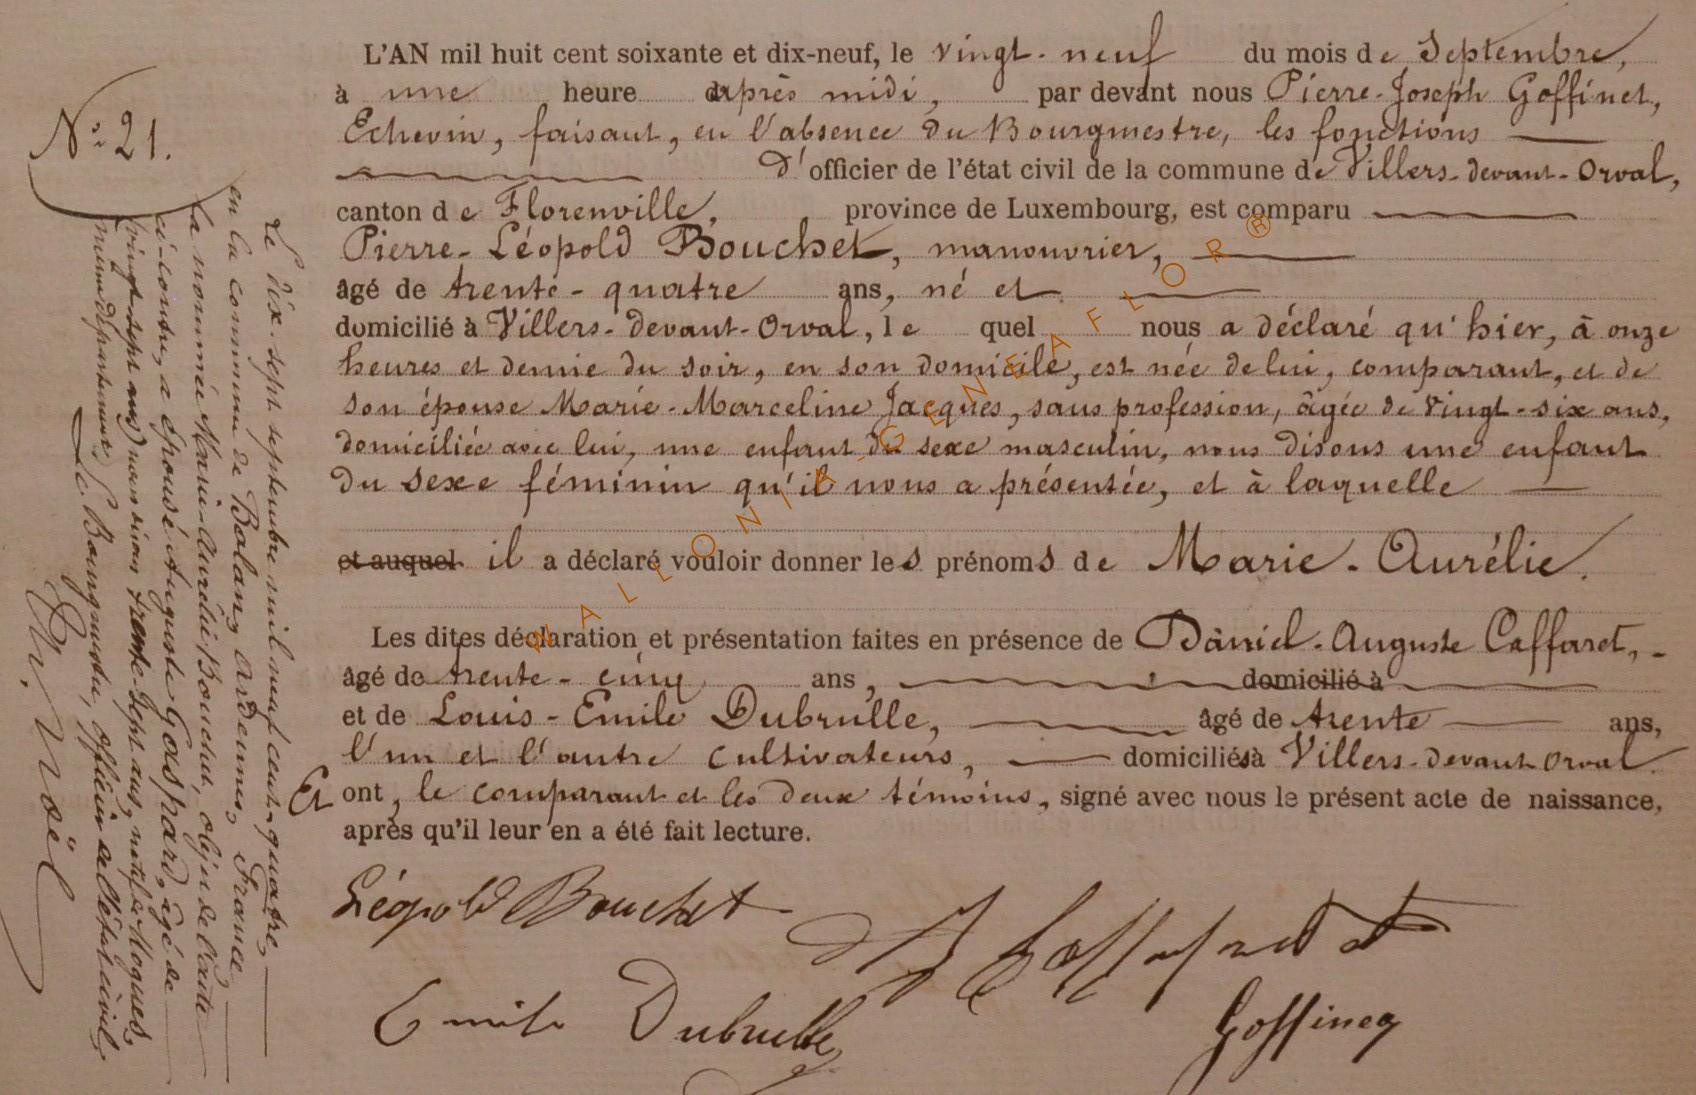 N.º 21.
L'AN mil huit cent soixante et dix-neuf, le vingt-neuf du mois de Septembre,
à une heure après midi, par devant nous Pierre-Joseph Goffinet,
Echevin, faisant, en l'absence du Bourgmestre, les fonctions
d'officier de l'état civil de la commune de Villers-devant-Orval,
canton de Florenville, province de Luxembourg, est comparu
Pierre-Léopold Bouchet, manouvrier,
âgé de trente-quatre ans, né et
domicilié à Villers-devant-Orval, lequel nous a déclaré qu'hier, à onze
heures et demie du soir, en son domicile, est née de lui, comparant, et de
son épouse Marie-Marceline Jacques, sans profession, âgée de vingt-six ans,
domiciliée avec lui, une enfant du sexe masculin, nous disons une enfant
du sexe féminin qu'il nous a présentée, et à laquelle
et auquel il a déclaré vouloir donner les prénoms de Marie-Aurélie.
Les dites déclaration et présentation faites en présence de Daniel-Auguste Caffaret,
âgé de trente-cinq ans, domicilié à
et de Louis-Emile Dubrulle, âgé de trente ans,
l'un et l'autre cultivateurs, domiciliés à Villers-devant-Orval.
Et ont, le comparant et les deux témoins, signé avec nous le présent acte de naissance,
après qu'il leur en a été fait lecture.
Léopold Bouchet
Caffaret
Emile Dubrulle
Goffinet
Le dix-sept septembre mil neuf cent-quatre,
en la commune de Balan, Ardennes, France,
la nommée Marie-Aurélie Bouchet, objet de l'acte
ci-contre, a épousé Auguste Gaspard, âgé de
(vingt-sept ans) trente-sept ans, né
même département.
Le Bourgmestre, officier de l'état civil,
Noël
WALLONIA-GENEAFLOR®